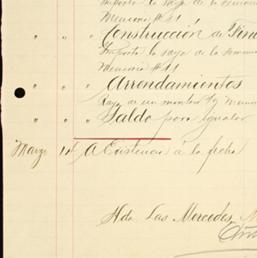 Importe la raya de la semana
Memoria #11
" " " Construcción de Fin
Importe la raya de la semana
Memoria #11
" " " Arrendamientos
Raya de un montero
" " " Saldo para igualar
Marzo 14 A Existencia á la fecha
Hda. Las Mercedes, M